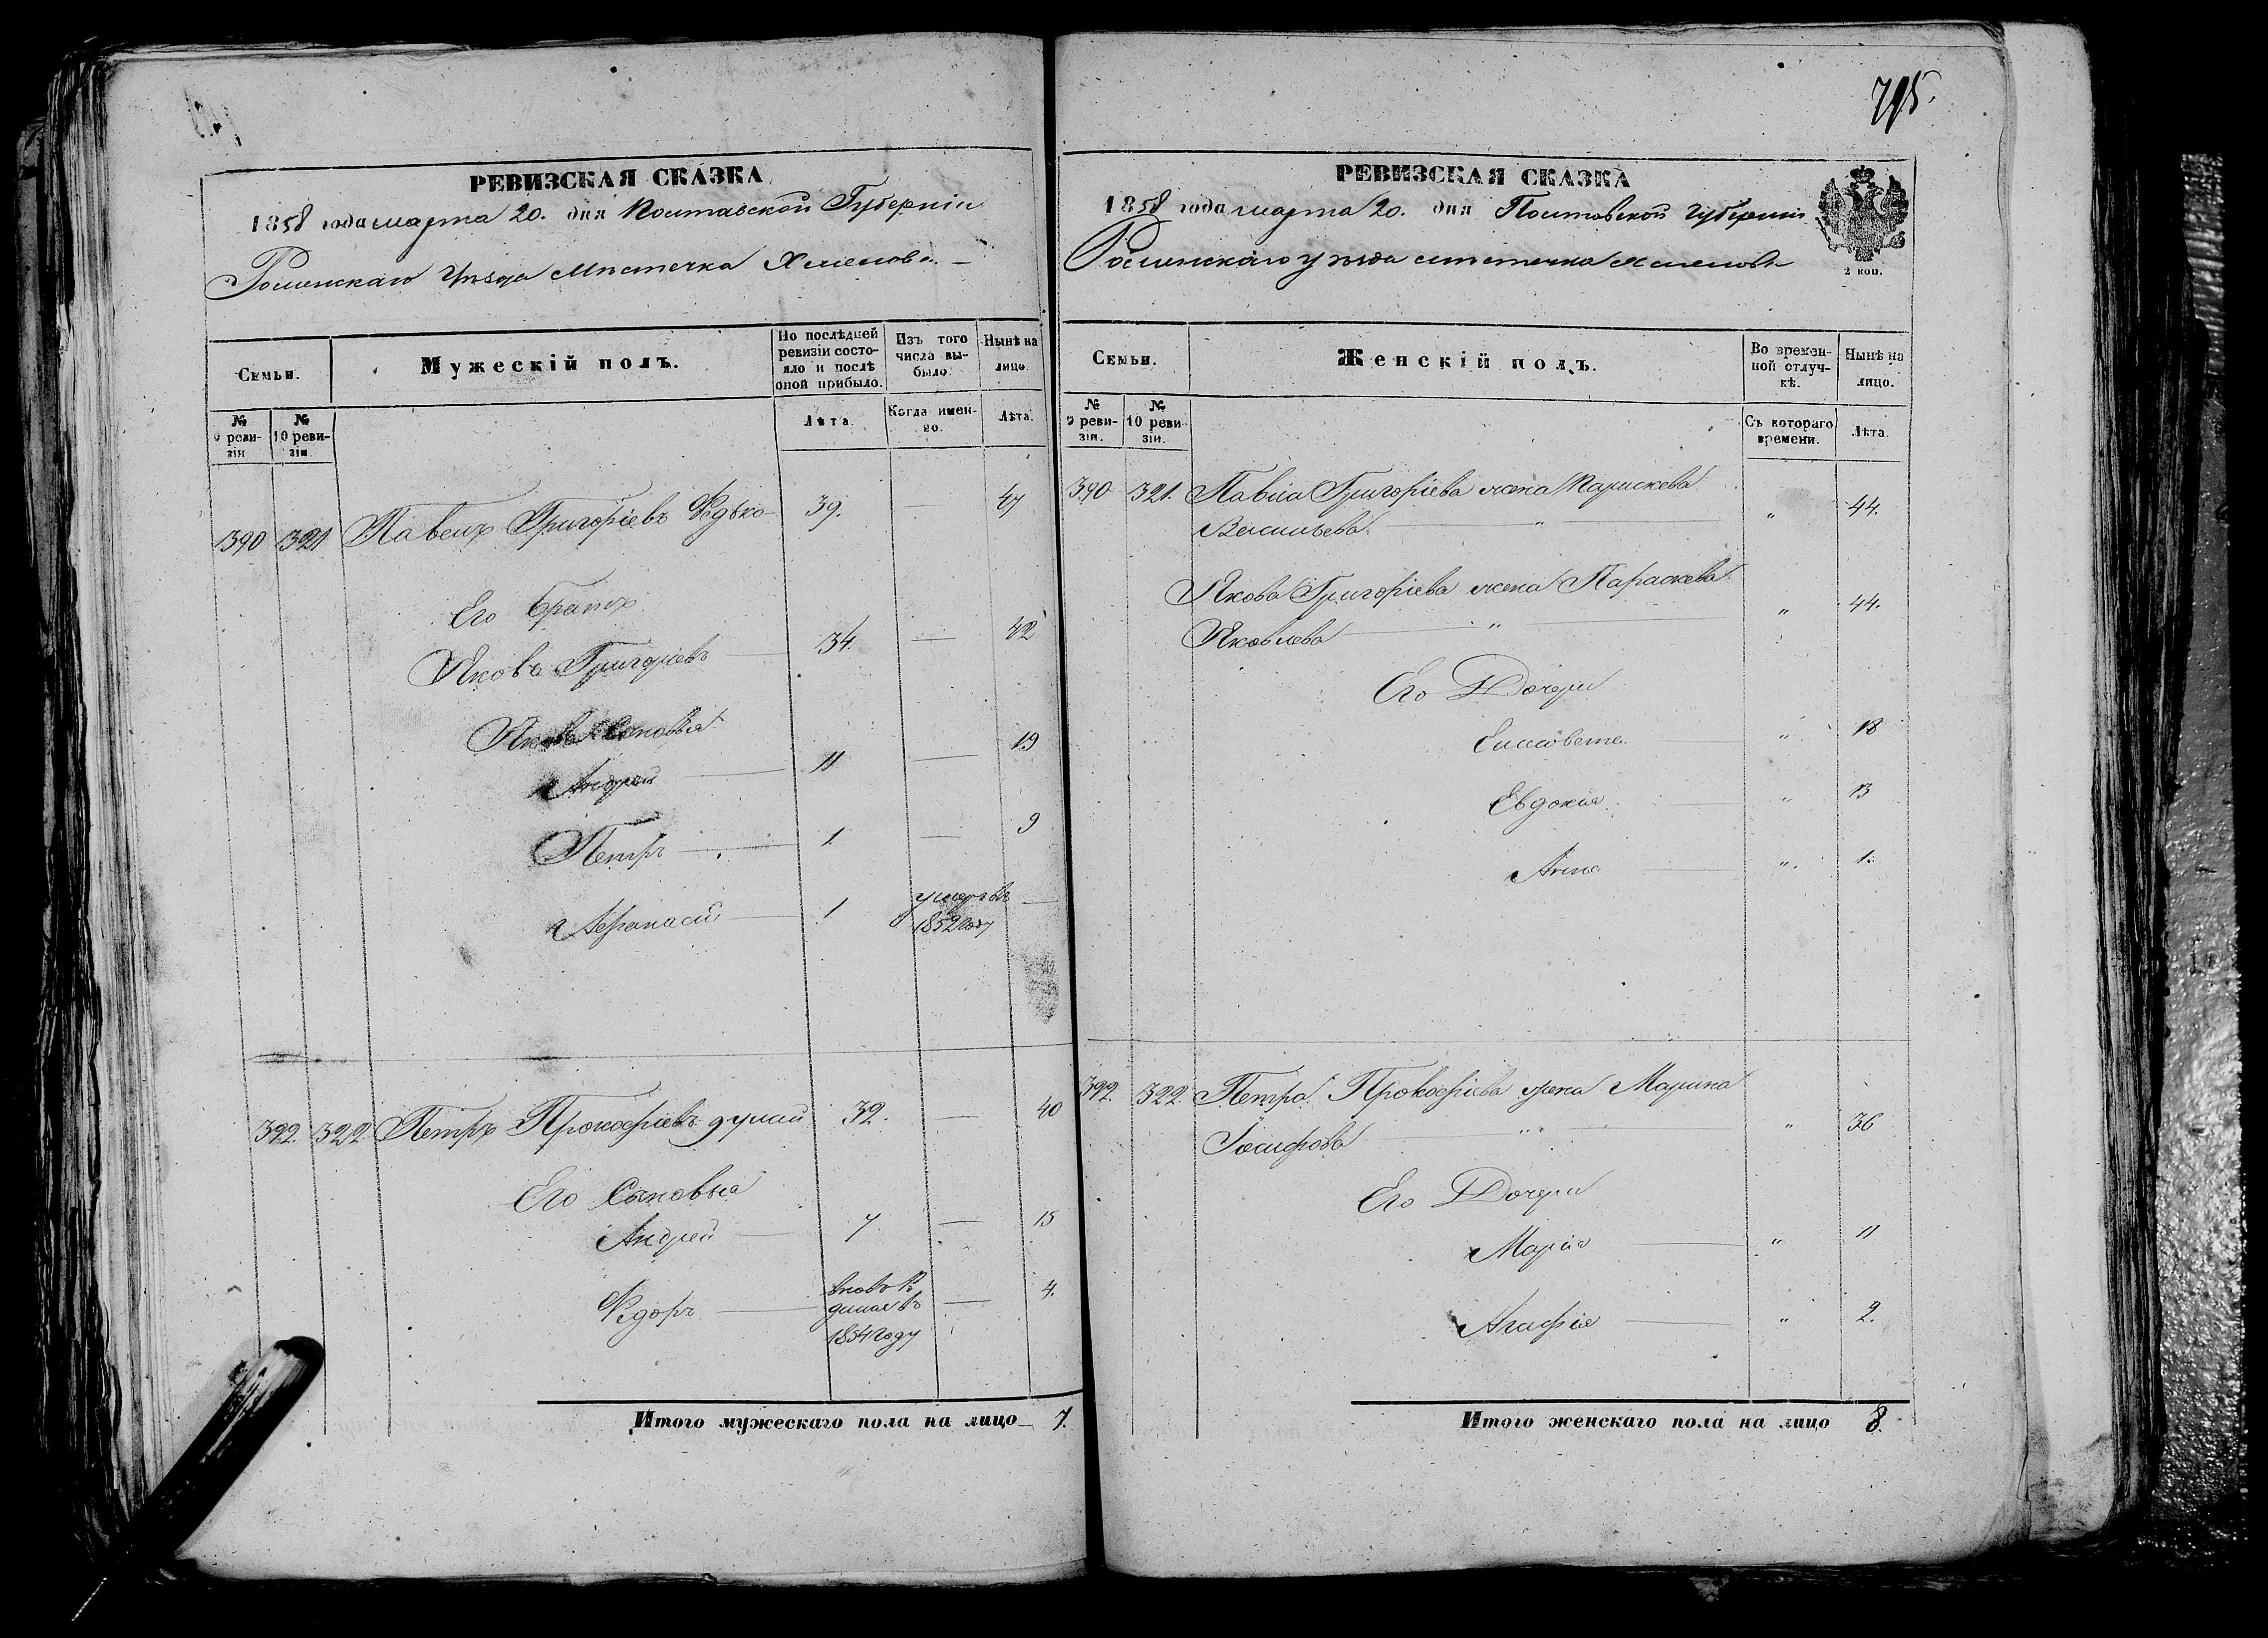 795.
РЕВИЗСКАЯ СКАЗКА
1858 года марта 20. дня Полтавской Губерніи
Роменскаго Уѣзда Мѣстечка Хмелова
Семьи.
Мужескій полъ.
По послѣдней ревизіи состояло и послѣ оной прибыло.
Изъ того числа выбыло.
Нынѣ на лицо.
№ 9 ревизіи
№ 10 ревизіи.
Лѣта.
Когда именно.
Лѣта.
390 321 Павелъ Григоріевъ Редько 39. — 47
Его братъ
Яковъ Григоріевъ — 34. — 42
Якова Сыновья
Андрей — 11 — 19
Петръ — 1. — 9
Афанасій — 1 умеръ въ 1852 году —
392. 322. Петръ Прокофіевъ 32. — 40
Его Сыновья
Андрей — 7 — 15
Федоръ — вновь родился въ 1854 году — 4.
Итого мужескаго пола на лицо 7.
РЕВИЗСКАЯ СКАЗКА
1858 года марта 20. дня Полтавской Губерніи
Роменскаго уѣзда мѣстечка Хмелова
2 коп.
Семьи.
Женскій полъ.
Во временной отлучкѣ.
Нынѣ на лицо.
№ 9 ревизіи.
№ 10 ревизіи.
Съ котораго времени.
Лѣта.
390 321. Павла Григоріева жена Параскева
Васильева — " — " 44.
Якова Григоріева жена Параскева
Яковлева — " — " 44.
Его Дочери
Елисавета — " 18
Евдокия — " 13
Анна — " 1.
392. 322. Петра Прокофіева жена Марина
Іосифова — " — " 36
Его Дочери
Марія — " 11
Агафія — " 2.
Итого женскаго пола на лицо 8.